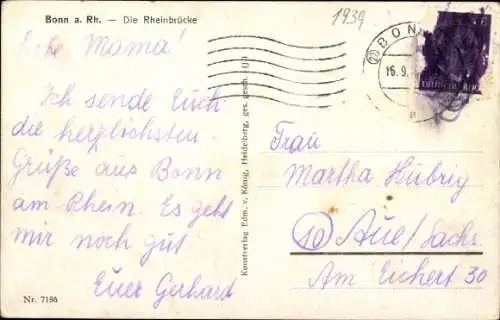 Bonn a. Rh. — Die Rheinbrücke
1939
BON
16.9.
Mama!
Ich sende Euch
die herzlichsten
Grüße aus Bonn
am Rhein. Es geht
mir noch gut
Euer Gerhard
Nr. 7186
Kunstverlag Edm. v. König, Heidelberg, ges. gesch. (J.)
Frau
Martha Hubrig
(10) Aue/Sachs.
Am Eichert 30